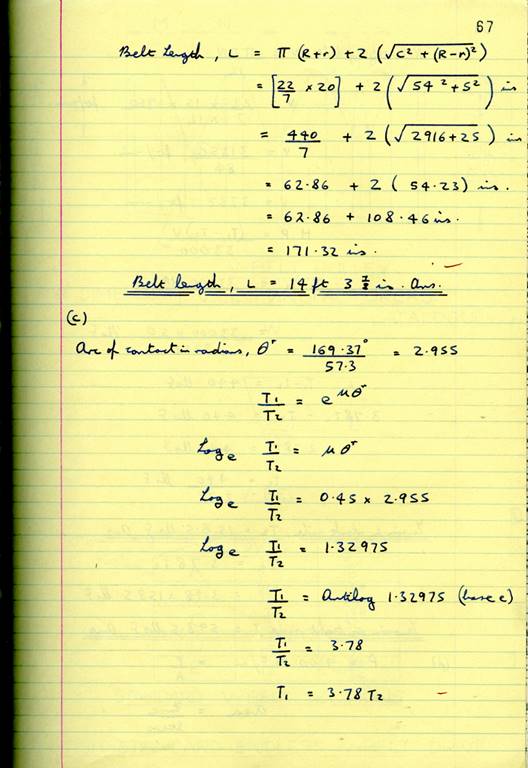 67
Belt Length, L = π (R+r) + 2 (√C² + (R-r)²)
= [22/7 × 20] + 2 (√54² + 5²) in
= 440/7 + 2 (√2916+25) in
= 62.86 + 2 ( 54.23) in.
= 62.86 + 108.46 in.
= 171.32 in.
Belt length, L = 14 ft 3 in. Ans.
(c)
Arc of contact in radians, θʳ = 169.37°/57.3 = 2.955
T₁/T₂ = e^μθʳ
Logₑ T₁/T₂ = μθʳ
Logₑ T₁/T₂ = 0.45 × 2.955
Logₑ T₁/T₂ = 1.32975
T₁/T₂ = Antilog 1.32975 (base e)
T₁/T₂ = 3.78
T₁ = 3.78 T₂